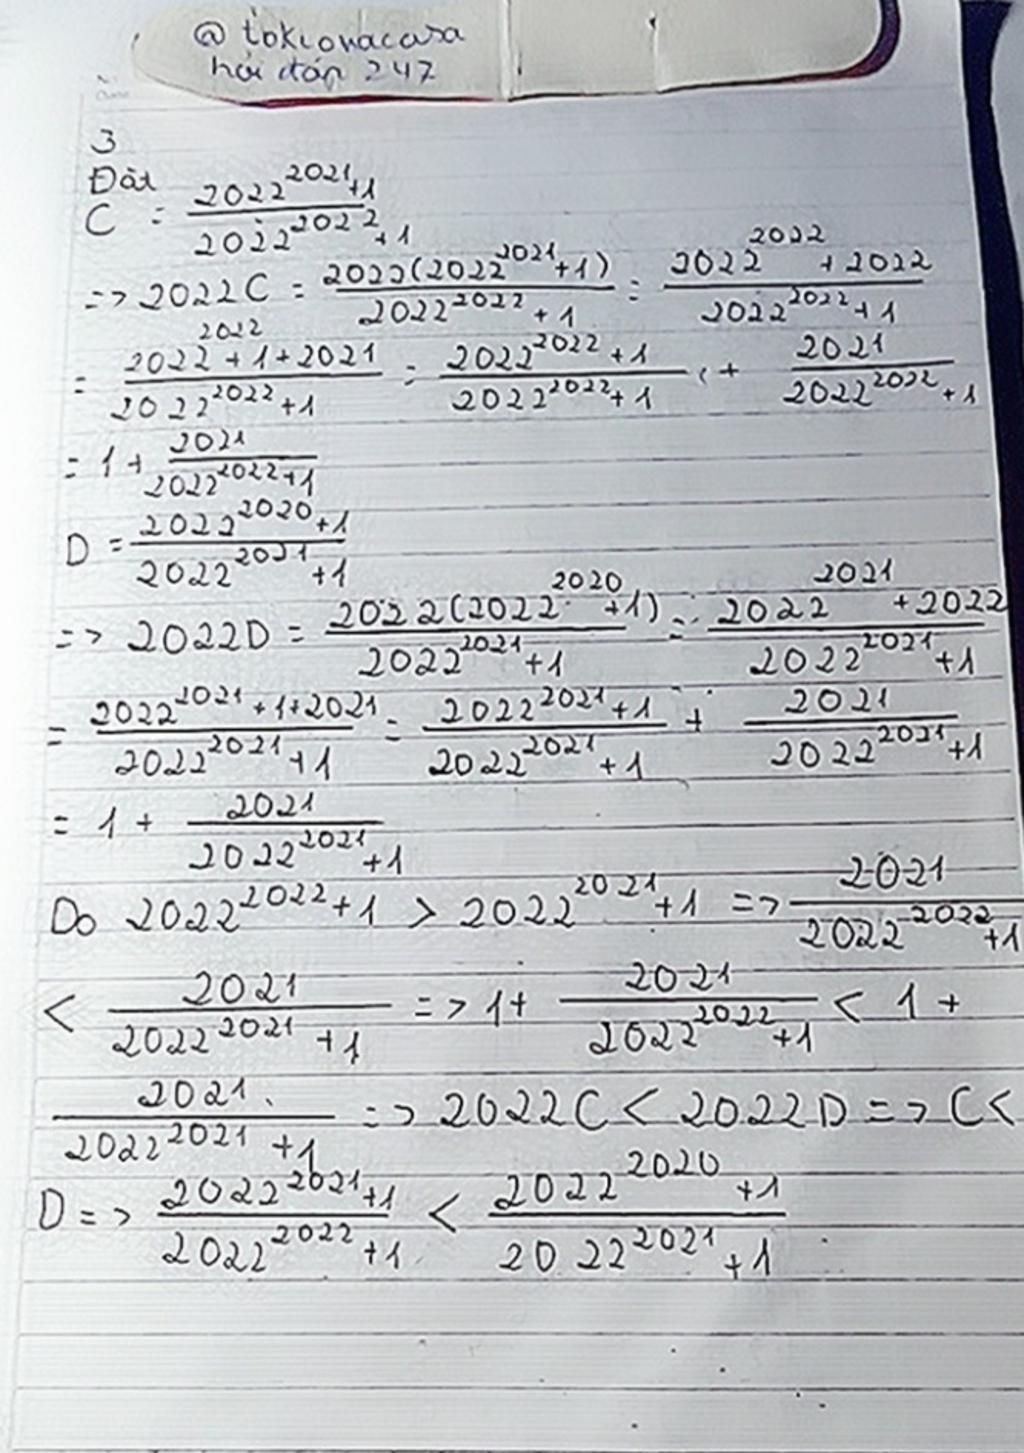 @ tokionacasa
hỏi đáp 247
3
Đặt
C = \frac{2022^{2021}+1}{2022^{2022}+1}
=> 2022C = \frac{2022(2022^{2021}+1)}{2022^{2022}+1} = \frac{2022^{2022}+2022}{2022^{2022}+1}
= \frac{2022^{2022}+1+2021}{2022^{2022}+1} = \frac{2022^{2022}+1}{2022^{2022}+1} + \frac{2021}{2022^{2022}+1}
= 1+ \frac{2021}{2022^{2022}+1}
D = \frac{2022^{2020}+1}{2022^{2021}+1}
=> 2022D = \frac{2022(2022^{2020}+1)}{2022^{2021}+1} = \frac{2022^{2021}+2022}{2022^{2021}+1}
= \frac{2022^{2021}+1+2021}{2022^{2021}+1} = \frac{2022^{2021}+1}{2022^{2021}+1} + \frac{2021}{2022^{2021}+1}
= 1 + \frac{2021}{2022^{2021}+1}
Do 2022^{2022}+1 > 2022^{2021}+1 => \frac{2021}{2022^{2022}+1}
< \frac{2021}{2022^{2021}+1} => 1+ \frac{2021}{2022^{2022}+1} < 1 +
\frac{2021}{2022^{2021}+1} => 2022C < 2022D => C <
D => \frac{2022^{2021}+1}{2022^{2022}+1} < \frac{2022^{2020}+1}{2022^{2021}+1}